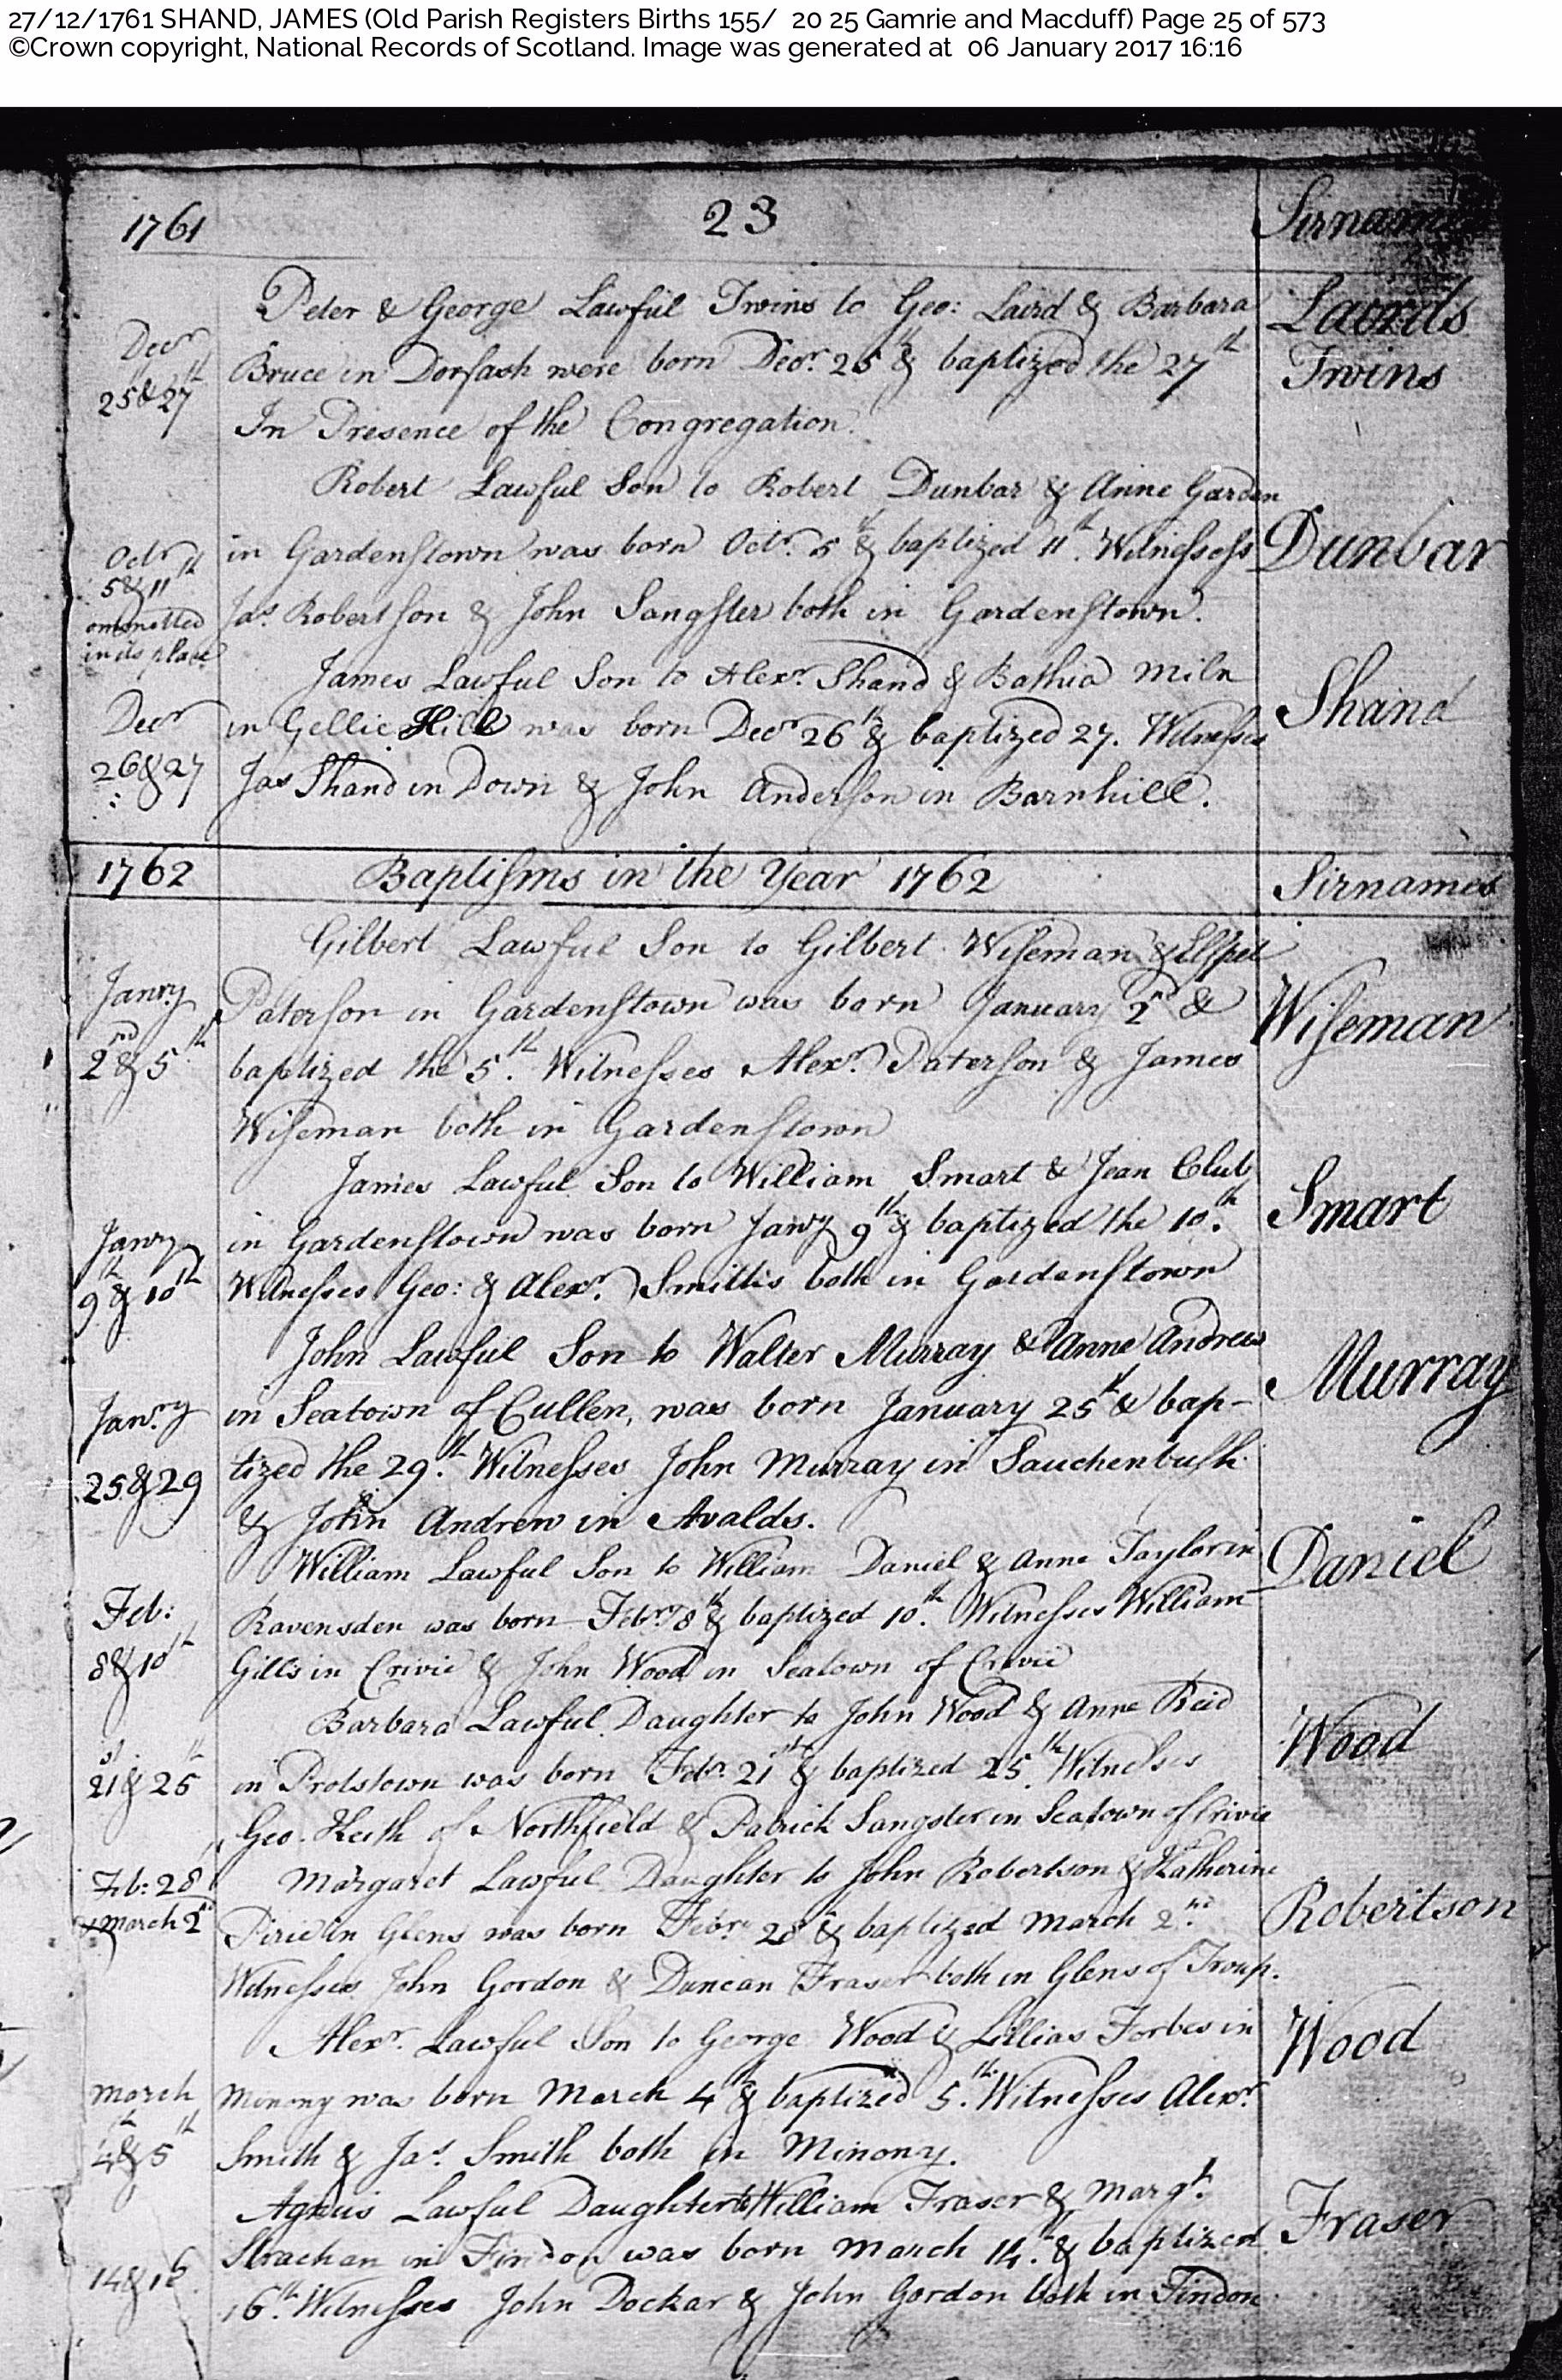 27/12/1761 SHAND, JAMES (Old Parish Registers Births 155/ 20 25 Gamrie and Macduff) Page 25 of 573
©Crown copyright, National Records of Scotland. Image was generated at 06 January 2017 16:16
1761
23
Sirnames
Peter & George Lawful Twins to Geo: Laird & Barbara
Bruce in Dorfash were born Decr. 25th & baptized the 27th
In Presence of the Congregation.
Decr
25 & 27th
Lairds
Twins
Robert Lawful Son to Robert Dunbar & Anne Garden
in Gardenstown was born Octr. 5th & baptized 11th. Witnesses
Jas. Robertson & John Sangster both in Gardenstown.
Octr
5 & 11th
ommitted
in its place
Dunbar
James Lawful Son to Alexr. Shand & Bathia Miln
in Gellie Hill was born Decr 26th & baptized 27. Witnesses
Jas Shand in Down & John Anderson in Barnhill.
Decr
26 & 27
Shand
1762
Baptisms in the Year 1762
Sirnames
Gilbert Lawful Son to Gilbert Wiseman & Elspet
Paterson in Gardenstown was born January 2d &
baptized the 5th. Witnesses Alexr. Paterson & James
Wiseman both in Gardenstown
Janry
2nd & 5th
Wiseman
James Lawful Son to William Smart & Jean Club
in Gardenstown was born Janry 9th & baptized the 10th.
Witnesses Geo: & Alexr. Smiths both in Gardenstown
Janry
9th & 10th
Smart
John Lawful Son to Walter Murray & Anne Andrew
in Seatown of Cullen, was born January 25th & bap-
tized the 29th. Witnesses John Murray in Sauchenbush
& John Andrew in Avalds.
Janry
25 & 29
Murray
William Lawful Son to William Daniel & Anne Taylor in
Ravensden was born Febry 8th & baptized 10th. Witnesses William
Gills in Crivie & John Wood in Seatown of Crivie
Feb:
8 & 10th
Daniel
Barbara Lawful Daughter to John Wood & Anne Reid
in Protstown was born Febr. 21st & baptized 25th. Witnesses
Geo. Keith of Northfield & Patrick Sangster in Seatown of Crivie
21st & 25th
Wood
Margaret Lawful Daughter to John Robertson & Katherine
Pirie in Glens was born Febr. 28th & baptized March 2nd.
Witnesses John Gordon & Duncan Fraser both in Glens of Troup.
Feb: 28
& March 2d
Robertson
Alexr. Lawful Son to George Wood & Lillias Forbes in
Minony was born March 4th & baptized 5th. Witnesses Alexr
Smith & Jas. Smith both in Minony.
March
4th & 5th
Wood
Agnus Lawful Daughter to William Fraser & Margt.
Strachan in Findon was born March 14th. & baptized
16th. Witnesses John Dockar & John Gordon both in Findon
14 & 16
Fraser